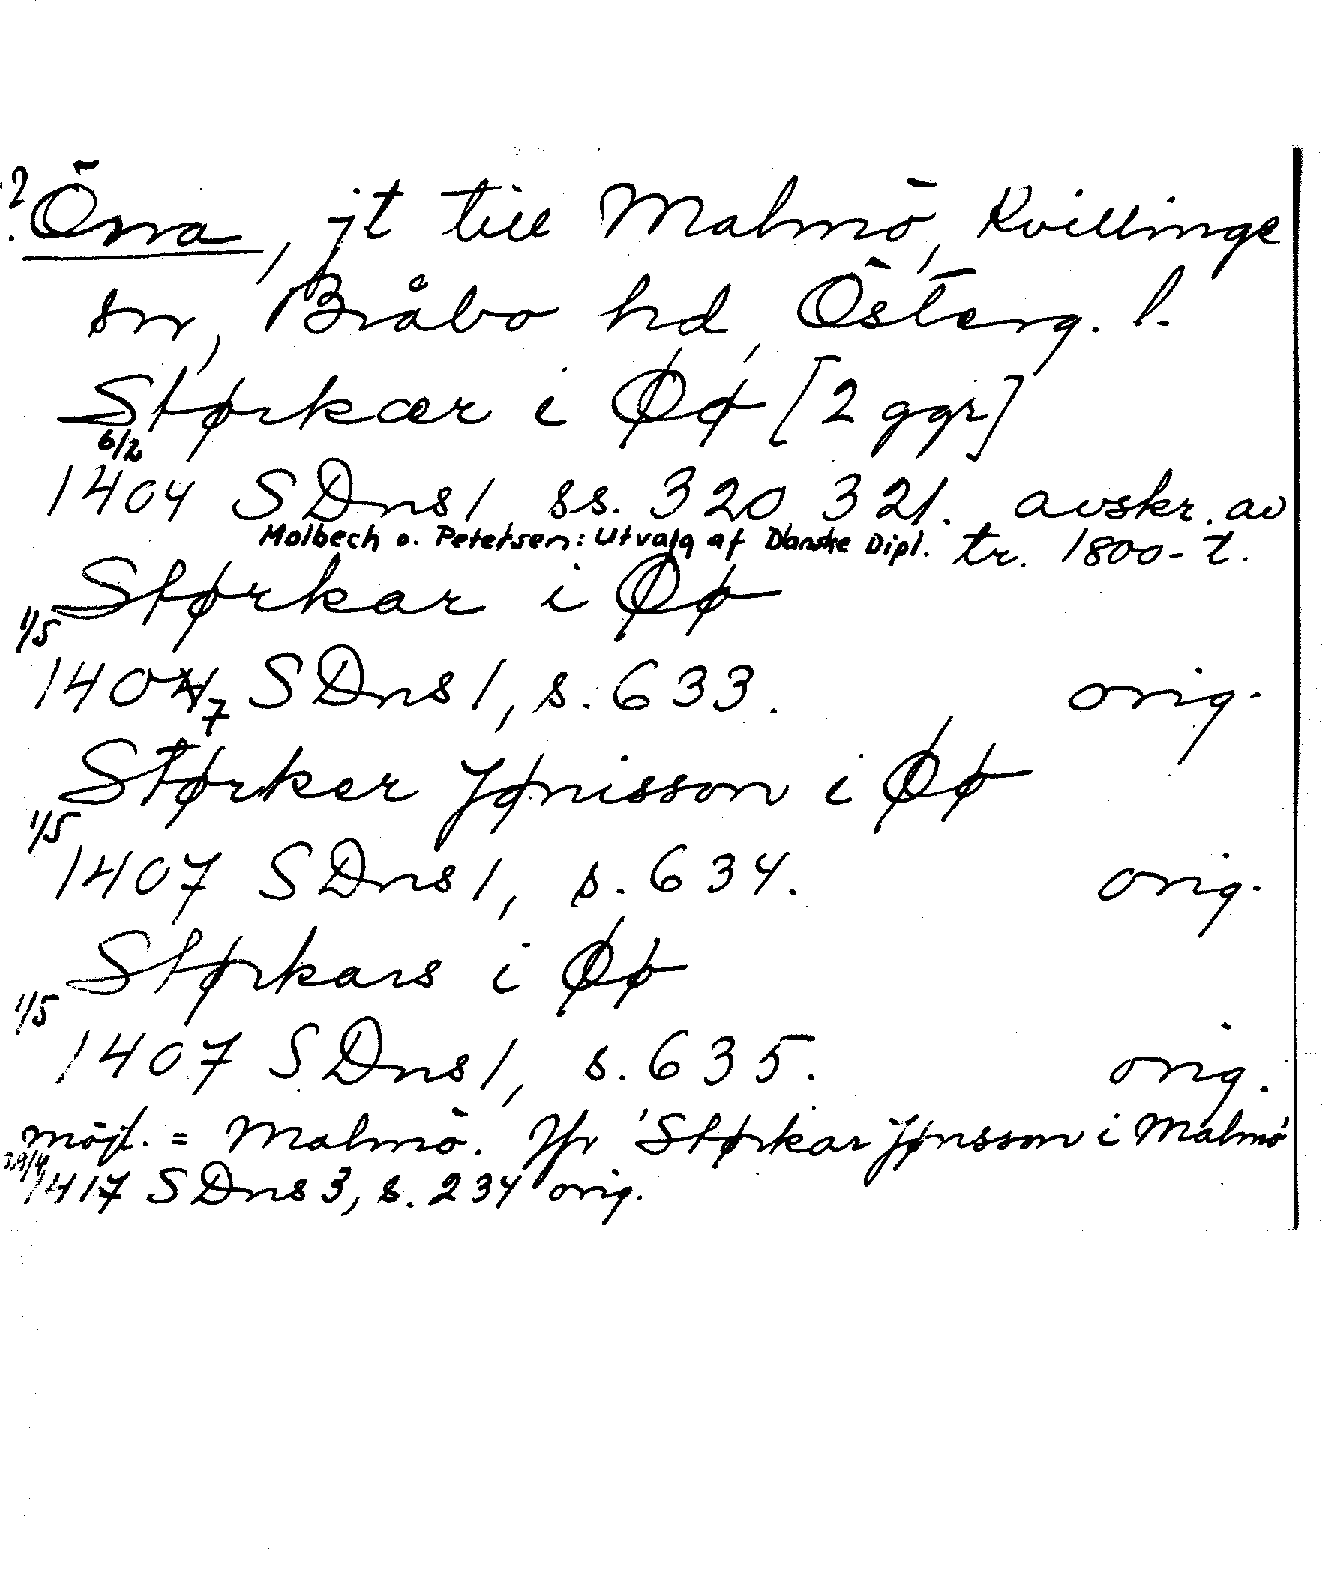 ? Öna, jt till Malmö, Kvillinge
sn, Bråbo hd, Österg. l.
Størkær i Øø [2 ggr]
6/2
1404 SDns1 ss. 320 321. avskr. av
Molbech o. Petersen: Utvalg af Danske Dipl. tr. 1800-t.
Størkar i Øø
1/5
1407 SDns1, s. 633. orig.
Størker Jønisson i Øø
1/5
1407 SDns1, s. 634. orig.
Størkars i Øø
1/5
1407 SDns1, s. 635. orig.
möjl. = Malmö. Jfr Størkar Jønsson i Malmö
1417 SDns3, s. 234 orig.